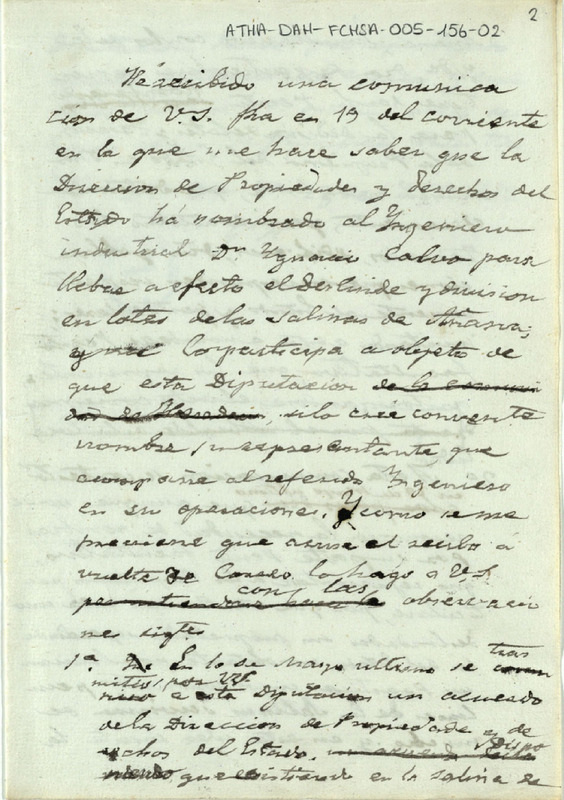 2
ATHA-DAH-FCHSA-005-156-02
He recibido una comunica
ción de V.S. fha en 19 del corriente
en la que me hace saber que la
Direccion de Propiedades y derechos del
Estado há nombrado al Ingeniero
industrial Dn Ygnacio Calvo para
llebar a efecto el deslinde y division
en lotes de las salinas de Añana;
lo participa a objeto de
que esta Diputacion
, si lo cree convente
nombre representante que
acompañe al referido Yngeniero
en su operaciones. Y como se me
previene que acuse el recibo á
vuelta de Correo lo hago a V.S.
con las observacio
nes sigtes
1ª. En 10 de Mayo ultimo se tras
mitió por V.S. a esta Diputacion un acuerdo
de la Direccion de Propiedades y de
rechos del Estado, dispo
niendo que existiendo en la salina de